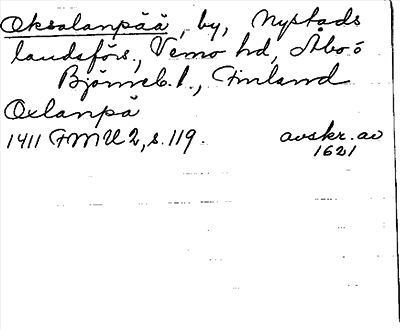 Oksalanpää, by, Nystads
landsförs., Vemo hd, Åbo o
Björneb. l., Finland
Oxlanpä
1411 FMU 2, s. 119. avskr. av
1621